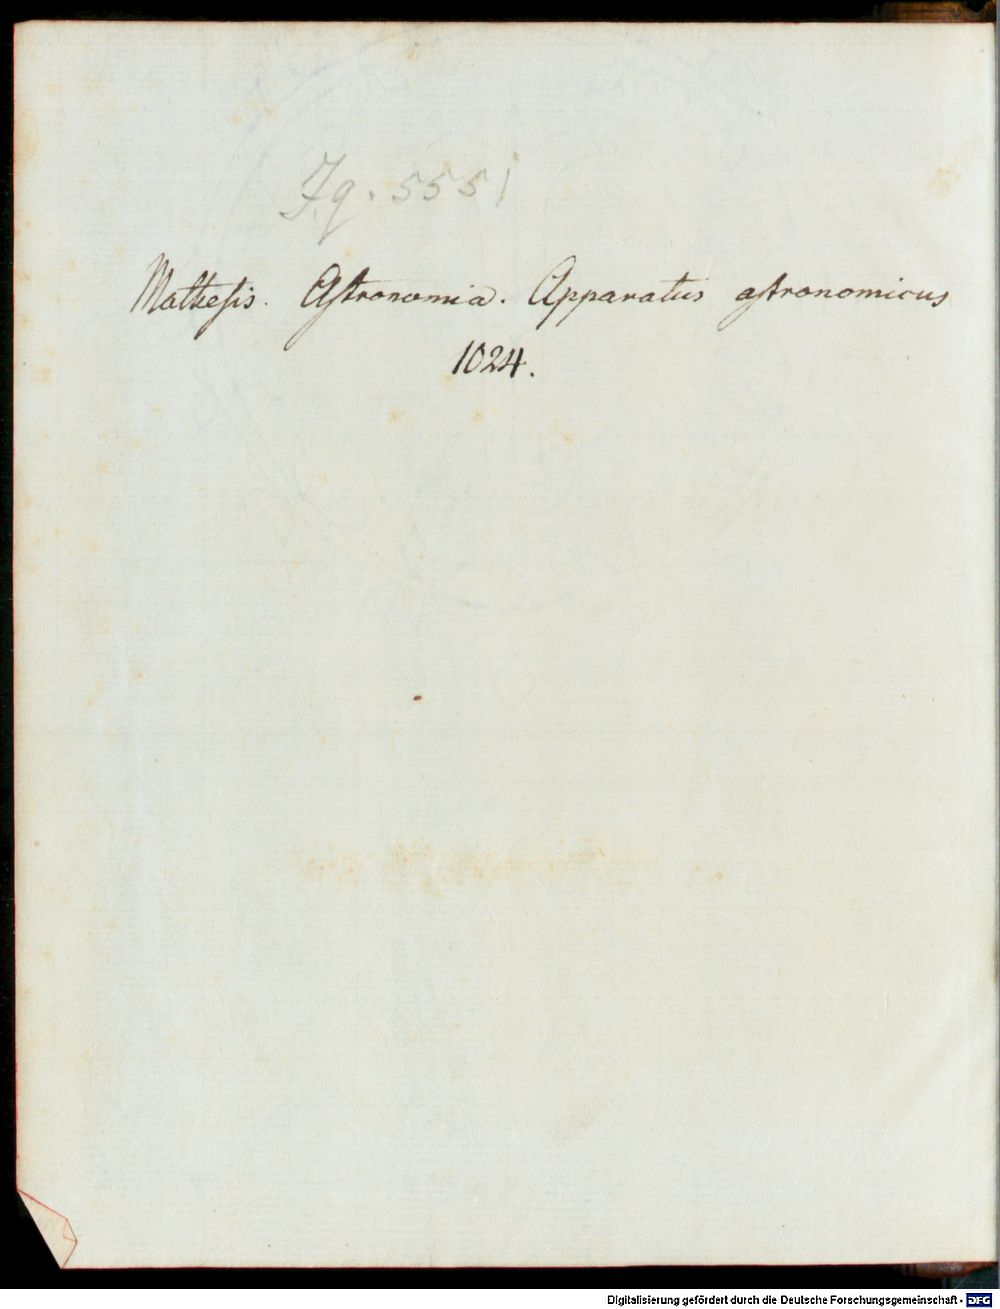 Jq. 5551
Matheſis. Aſtronomia. Apparatus aſtronomicus
1024.
Digitalisierung gefördert durch die Deutsche Forschungsgemeinschaft - DFG